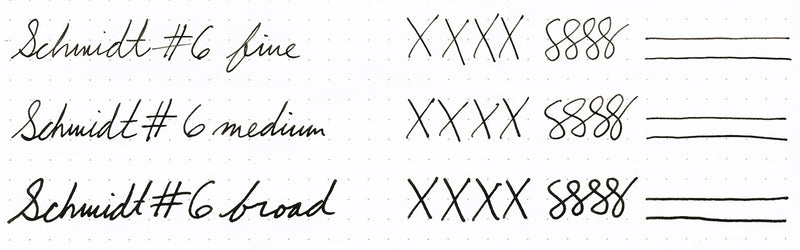 Schmidt #6 fine XXXX 8888
Schmidt #6 medium XXXX 8888
Schmidt #6 broad XXXX 8888